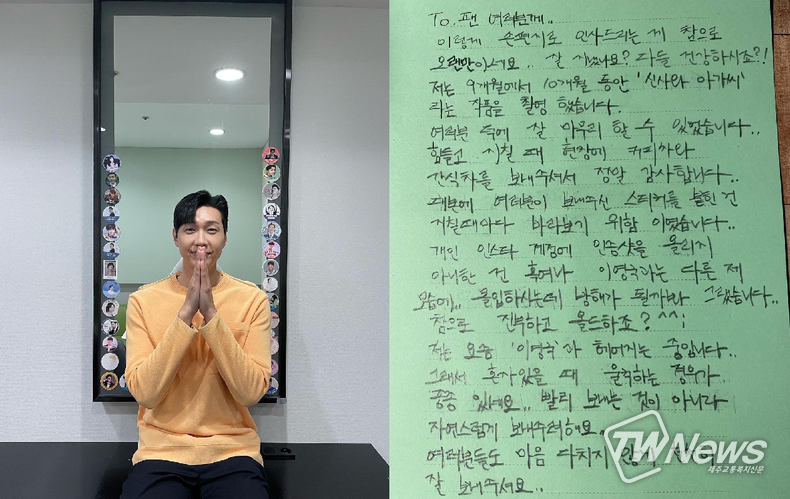 To. 팬 여러분께..
이렇게 손편지로 인사드리는 게 참으로
오랜만이네요.. 잘 지냈나요? 다들 건강하시죠?!
저는 9개월에서 10개월 동안 '신사와 아가씨'
라는 작품을 촬영 했습니다.
여러분 덕에 잘 마무리 할 수 있었습니다..
힘들고 지칠 때 현장에 커피차와
간식차를 보내주셔서 정말 감사합니다..
대본에 여러분이 보내주신 스티커를 붙힌 건
지칠때마다 바라보기 위함 이었습니다..
개인 인스타 계정에 인증샷을 올리지
아니한 건 혹여나 이영국과는 다른 제
모습에.. 몰입하시는데 방해가 될까봐 그랬습니다..
참으로 진부하고 올드하죠? ^^;
저는 요즘 '이영국'과 헤어지는 중입니다..
그래서 혼자있을 때 울컥하는 경우가
종종 있네요.. 빨리 보내는 것이 아니라
자연스럽게 보내주려해요..
여러분들도 마음 다치지 않게
잘 보내주셔요..
TW News
제주교통복지신문